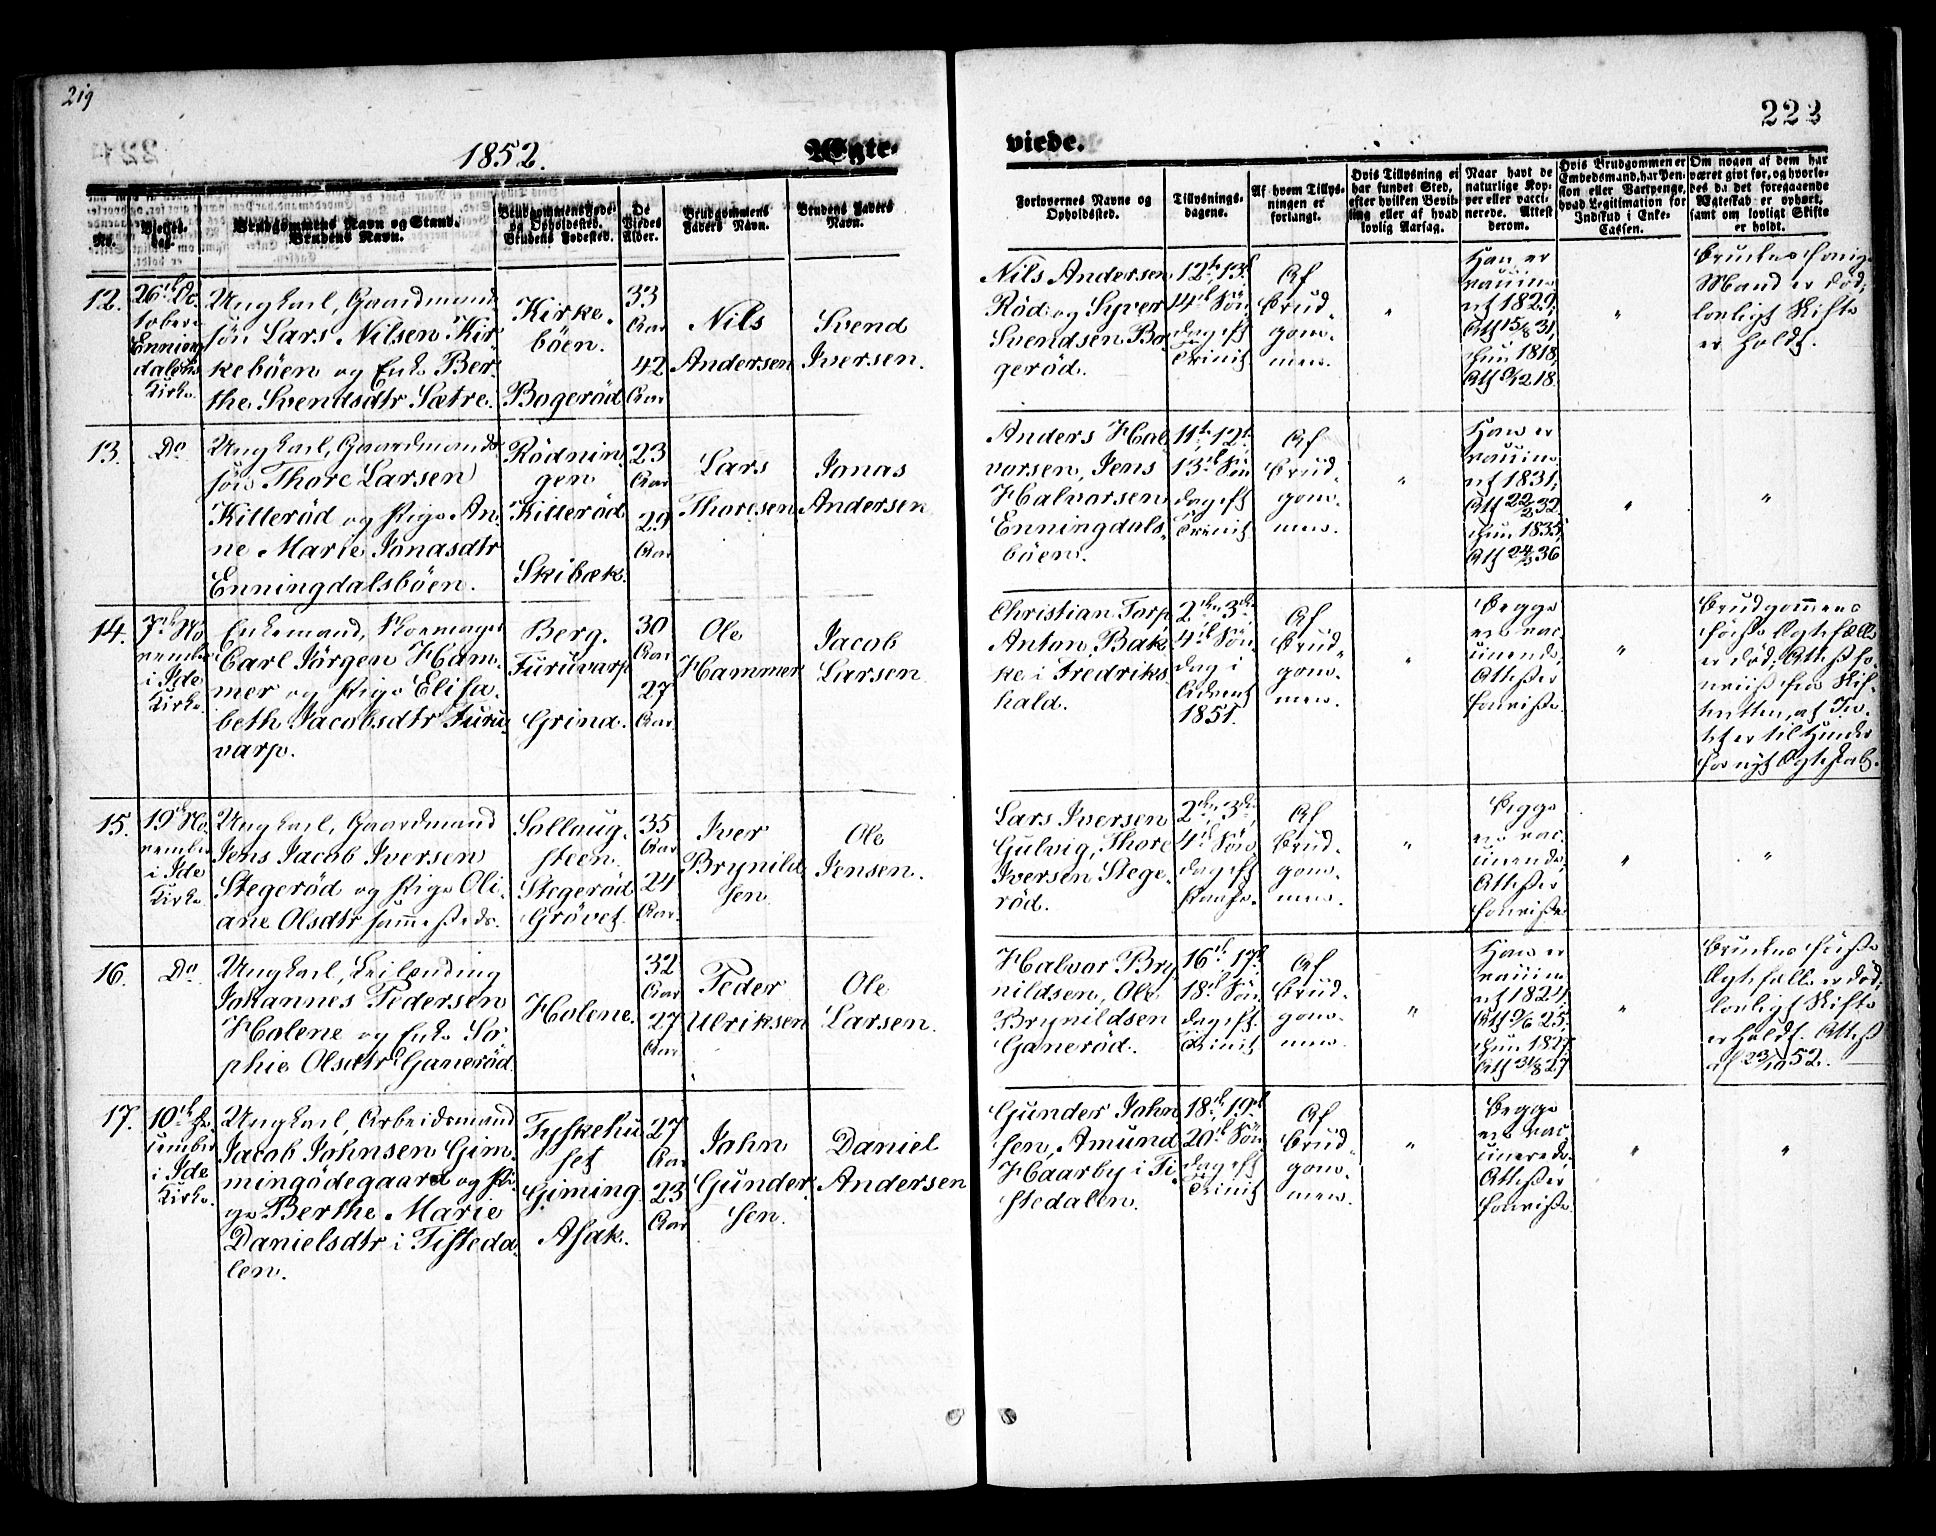 219
1852.
Ægte-
No.
Vielses-
dag.
Brudgommens Navn og Stand.
Brudens Navn.
Brudgommens Føde-
og Opholdssted.
Brudens Fødested.
De
Viedes
Alder.
Brudgommens
Faders Navn.
Brudens Faders
Navn.
12.
26de Oc
tober i
Enning
dalens
Kirke
Ungkarl, Gaardmand
søn Lars Nilsen Kir
kebøen og Enke Ber-
the Svendsdtr Sætre.
Kirke-
bøen.
Bogerød
33
Aar
42
Aar
Nils
Andersen
Svend
Iversen.
13.
Do
Ungkarl, Gaardmands
søn Thore Larsen
Kitterød og Pige An-
ne Marie Jonasdtr
Enningdalsbøen.
Rødnin-
gen
Kitterød
Skibæk.
23
Aar
29
Aar
Lars
Thoresen
Jonas
Andersen
14.
7de No
vember
i Ide
Kirke.
Enkemand, Skomager
Carl Jørgen Ham-
mer og Pige Elisa-
beth Jacobsdtr Furu
varp.
Berg.
Furuvarp
Grind.
30
Aar
27
Aar
Ole
Hammer
Jacob
Larsen
15.
19de No
vember
i Ide
Kirke
Ungkarl, Gaardmand
Jens Jacob Iversen
Stegerød og Pige Oli-
ane Olsdtr sammesteds.
Sollaug-
steen.
Stegerød
Grøvet.
35
Aar
24
Aar.
Iver
Brynild
sen
Ole
Jensen.
16.
Do
Ungkarl, Leilænding
Johannes Pedersen
Holene og Enke So-
phie Olsdtr Ganerød
Holene.
32
Aar
27
Aar
Peder
Ulriksen
Ole
Larsen.
17.
10de De
cember
i Ide
Kirke.
Ungkarl, Arbeidsmand
Jacob Johnsen Gim-
mingødegaard og Pi-
ge Berthe Marie
Danielsdtr i Tisteda-
len.
Tyskehu
set
Giming
Asak.
27
Aar
23
Aar
John
Gunder
sen.
Daniel
Andersen
223
viede.
Forlovernes Navne og
Opholdssted.
Tillysnings-
dagene.
Af hvem Tillys-
ningen er
forlangt.
Hvis Tillysning ei
har fundet Sted,
efter hvilken Bevil-
ling eller af hvad
lovlig Aarsag.
Naar havt de
naturlige Kop-
per eller vacci-
nerede. Attest
derom.
Hvis Brudgommen er
Embedsmand, har Pen-
sion eller Vartpenge,
hvad Legitimation for
Indskud i Enke-
Cassen.
Om nogen af dem har
været givt før, og hvorle-
des da det foregaaende
Ægteskab er ophørt,
samt om lovligt Skifte
er holdt.
Nils Andersen
Rød og Syver
Svendsen Bo
gerød.
12te, 13de
4de Søn
dag eft
Trinit
Af
Brud-
gom-
men.
"
Han er
vaccine
ret 1829,
Att 15/8 31,
Hun 1818,
"
Brudens forrige
Mand er død,
lovligt Skifte
er holdt.
Anders Hal
vorsen, Jens
Halvorsen
Enningdals-
bøen.
11te, 12te
13de Søn
dag eft
Trinit
Af
Brud-
gom-
men.
"
Han er
vaccine
ret 1831,
Hun 1835,
"
"
Christian Torp
Anton Bak
ke i Fredriks
hald.
2den, 3die
4de Søn
dag i
Advent
1851.
Af
Brud-
gom-
men.
"
Begge
ere vac
cinerede,
Attester
foreviste.
"
Brudgommens
første Ægtefælle
er død; Attest fo-
reviist fra Skif-
teretten, at In-
tet er til Hinder
for nyt Ægteskab.
Lars Iversen
Gulvig, Thore
Iversen Stege-
rød.
2den, 3die
4de Søn
dag eft
Paaske.
Af
Brud-
gom-
men.
"
Begge
ere vac
cinerede,
Attester
foreviste
"
"
Halvor Bry
nildsen, Ole
Brynildsen
Ganerød.
16de 17de
18de Søn
dag eft
Trinit
Af
Brud-
gom-
men.
"
Han er
vaccine
ret 1824,
Hun 1827,
Att 31/8 27
"
Brudens første
Ægtefælle er død,
lovligt Skifte
er holdt. Attest
af 23/10 52.
Gunder John
sen, Amund
Haarby i Ti
stedalen.
18de, 19de
20de Søn
dag eft
Trinit
Af
Brud-
gom-
men.
"
Begge
ere vac
cinerede,
Attester
foreviste.
"
"